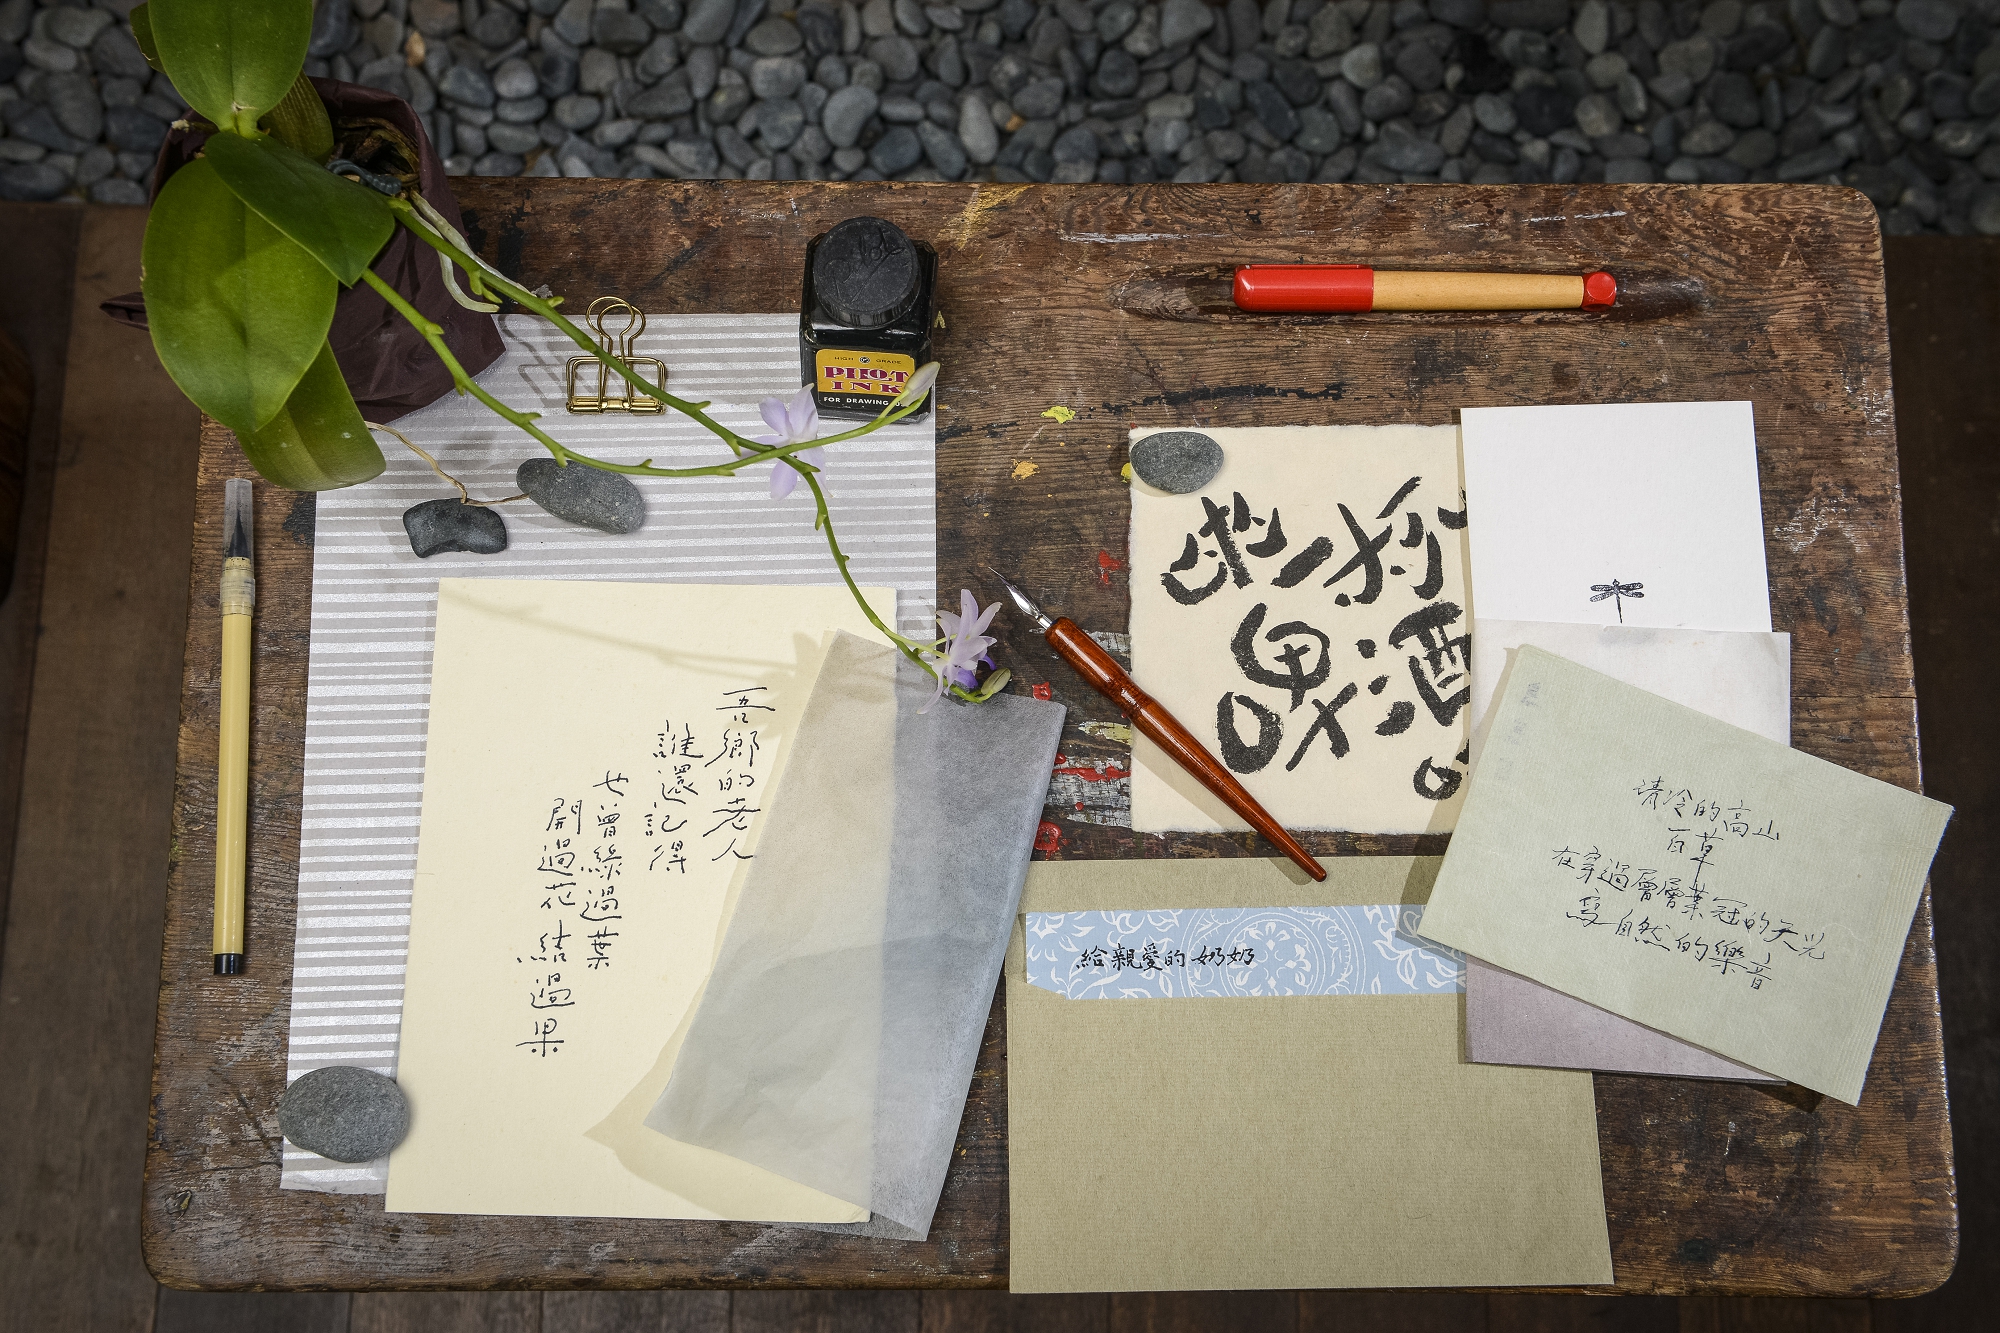 HIGH GRADE
PILOT
INK
FOR DRAWING
吾鄉的老人
誰還記得
也曾綠過葉
開過花 結過果
酒
給親愛的奶奶
清冷的高山
百草
在穿過層層葉冠的天光
寫自然的樂音